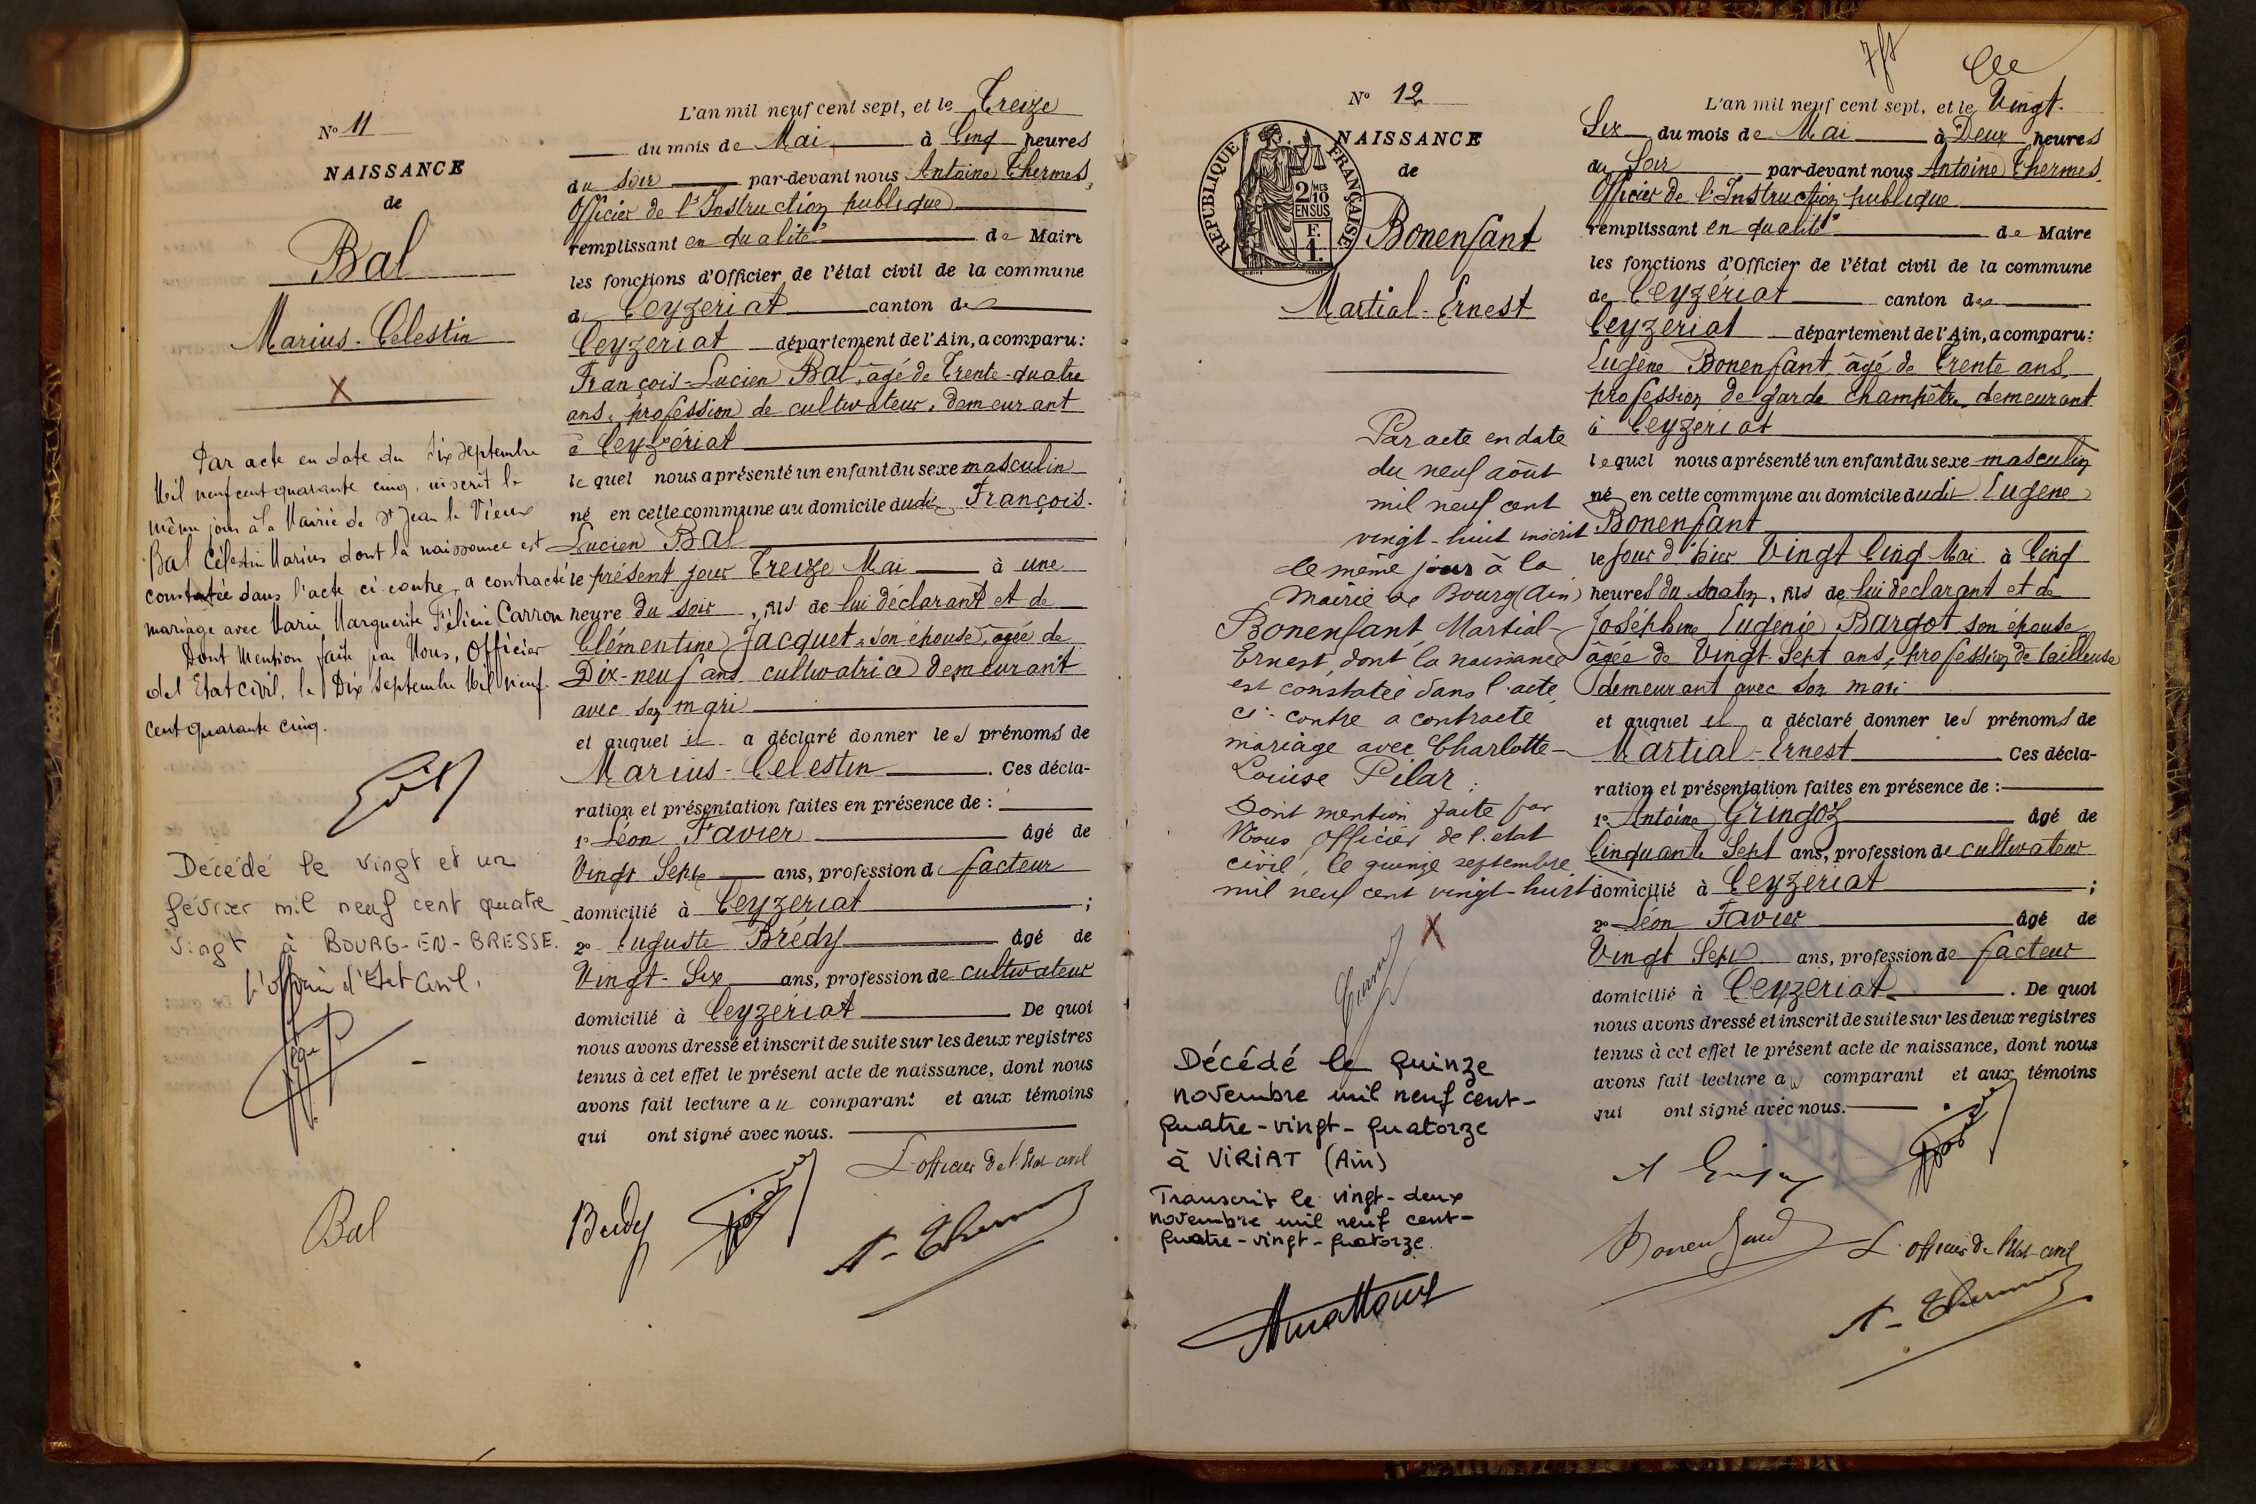 Nº 11
NAISSANCE
de
Bal
Marius-Celestin
X
Par acte en date du dix septembre
Mil neuf cent quarante cinq, inscrit le
même jour à la Mairie de St Jean le Vieux
Bal Célestin Marius dont la naissance est
constatée dans l'acte ci-contre, a contracté
mariage avec Marie Marguerite Félicie Carron
Dont Mention faite par Nous, Officier
del Etat civil, le Dix Septembre Mil neuf
cent quarante cinq.
Décédé le vingt et un
février mil neuf cent quatre
vingt à BOURG-EN-BRESSE.
l'officier d'Etat Civil.
Bal
L'an mil neuf cent sept, et le Treize
du mois de Mai à Cinq heures
du Soir par-devant nous Antoine Thermes,
Officier de l'Instruction publique
remplissant en qualité de Maire
les fonctions d'Officier de l'état civil de la commune
de Ceyzériat canton de
Ceyzeriat département de l'Ain, a comparu:
François-Lucien Bal, âgé de Trente-quatre
ans, profession de cultivateur, demeurant
à Ceyzériat
lequel nous a présenté un enfant du sexe masculin
né en cette commune au domicile dudit François-
Lucien Bal
le présent jour Treize Mai à une
heure du soir, fils de lui déclarant et de
Clémentine Jacquet, son épouse, agée de
Dix-neuf ans cultivatrice demeurant
avec son mari
et auquel il a déclaré donner les prénoms de
Marius-Celestin. Ces décla-
ration et présentation faites en présence de :
1º Léon Favier âgé de
Vingt Sept ans, profession de facteur
domicilié à Ceyzeriat ;
2º Auguste Brédy âgé de
Vingt-Six ans, profession de cultivateur
domicilié à Ceyzériat De quoi
nous avons dressé et inscrit de suite sur les deux registres
tenus à cet effet le présent acte de naissance, dont nous
avons fait lecture au comparant et aux témoins
qui ont signé avec nous.
L'officier de l'Etat civil
Bredy
A. Thermes
Nº 12
NAISSANCE
de
REPUBLIQUE FRANÇAISE
2/10
MES
EN SUS
F.
1.
Bonenfant
Martial-Ernest
Par acte en date
du neuf août
mil neuf cent
vingt-huit inscrit
le même jour à la
mairie de Bourg (Ain)
Bonenfant Martial-
Ernest, dont la naissance
est constatée dans l'acte
ci-contre a contracté
mariage avec Charlotte-
Louise Pilar.
Dont mention faite par
Nous, Officier de l'état
civil, le quinze septembre
mil neuf cent vingt-huit
X
Décédé le quinze
novembre mil neuf cent-
quatre-vingt-quatorze
à VIRIAT (Ain)
Transcrit le vingt-deux
novembre mil neuf cent-
quatre-vingt-quatorze.
L'an mil neuf cent sept, et le Vingt-
Six du mois de Mai à Deux heures
du Soir par-devant nous Antoine Thermes,
Officier de l'Instruction publique
remplissant en qualité de Maire
les fonctions d'Officier de l'état civil de la commune
de Ceyzériat canton de
Ceyzeriat département de l'Ain, a comparu:
Eugène Bonenfant, âgé de Trente ans,
profession de garde champêtre, demeurant
à Ceyzeriat
lequel nous a présenté un enfant du sexe masculin
né en cette commune au domicile dudit Eugene
Bonenfant
le jour d'hier Vingt Cinq Mai à Cinq
heures du matin, fils de lui déclarant et de
Joséphine Eugénie Bargot son épouse
âgée de Vingt-Sept ans, profession de tailleuse
demeurant avec son mari
et auquel il a déclaré donner les prénoms de
Martial-Ernest. Ces décla-
ration et présentation faites en présence de :
1º Antoine Gringoz âgé de
Cinquante Sept ans, profession de cultivateur
domicilié à Ceyzeriat ;
2º Léon Favier âgé de
Vingt Sept ans, profession de facteur
domicilié à Ceyzériat. De quoi
nous avons dressé et inscrit de suite sur les deux registres
tenus à cet effet le présent acte de naissance, dont nous
avons fait lecture au comparant et aux témoins
qui ont signé avec nous.
Bonenfant
L'officier de l'Etat civil
A. Thermes